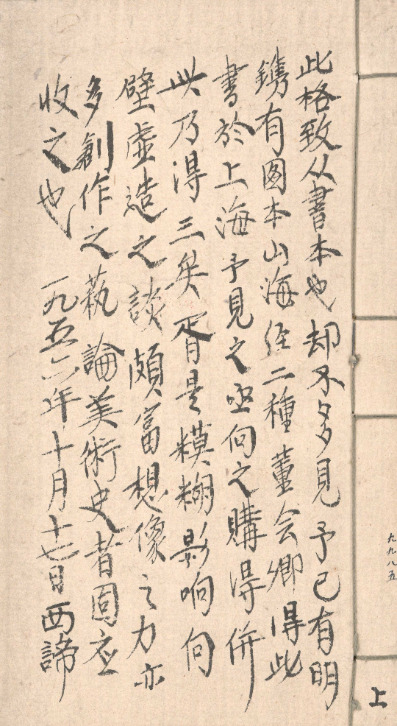 此格致丛書本也却不多見予已有明
鐫有图本山海经二種董会卿得此
書於上海予見之亟向之購得併
此乃得三矣胥是模糊影响向
壁虚造之談頗富想像之力亦
多創作之藝論美術史者固应
收之也 一九五六年十月十七日西諦
九九八五
上